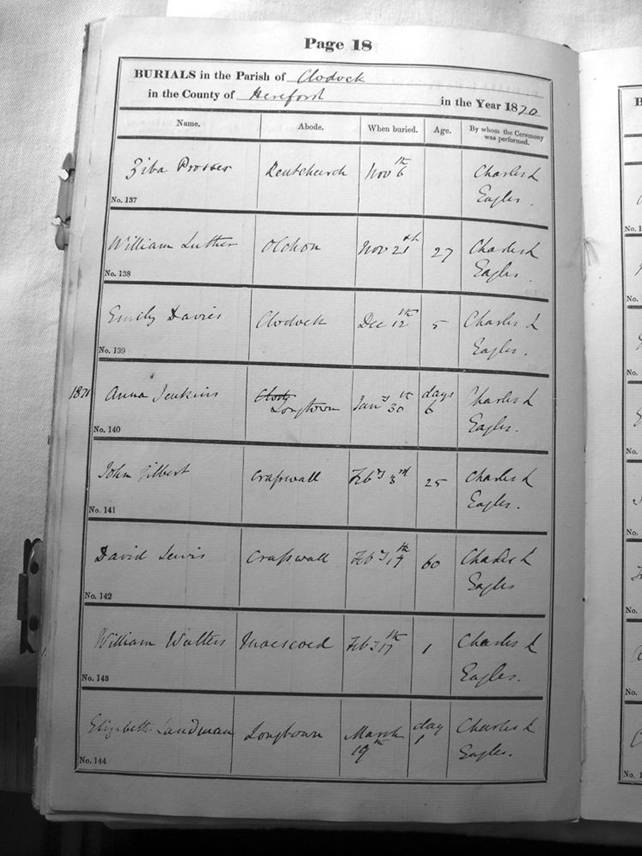 Page 18
BURIALS in the Parish of Clodock
in the County of Hereford in the Year 1870
Name. Abode. When buried. Age. By whom the Ceremony was performed.
Ziba Prosser Kentchurch Nov 6th Charles L Eagles.
No. 137
William Luther Olchon Nov 21th 27 Charles L Eagles.
No. 138
Emily Davies Clodock Dec 12th 5 Charles L Eagles.
No. 139
1871 Anna Jenkins Longtown Jany 30th days 6 Charles L Eagles.
No. 140
John Gilbert Crasswall Feby 3rd 25 Charles L Eagles.
No. 141
David Lewis Crasswall Feby th 60 Charles L Eagles
No. 142
William Walters Maescoed Feby 17th 1 Charles L Eagles.
No. 143
Elizabeth Landman Longtown March 19th day 1 Charles L Eagles.
No. 144
B